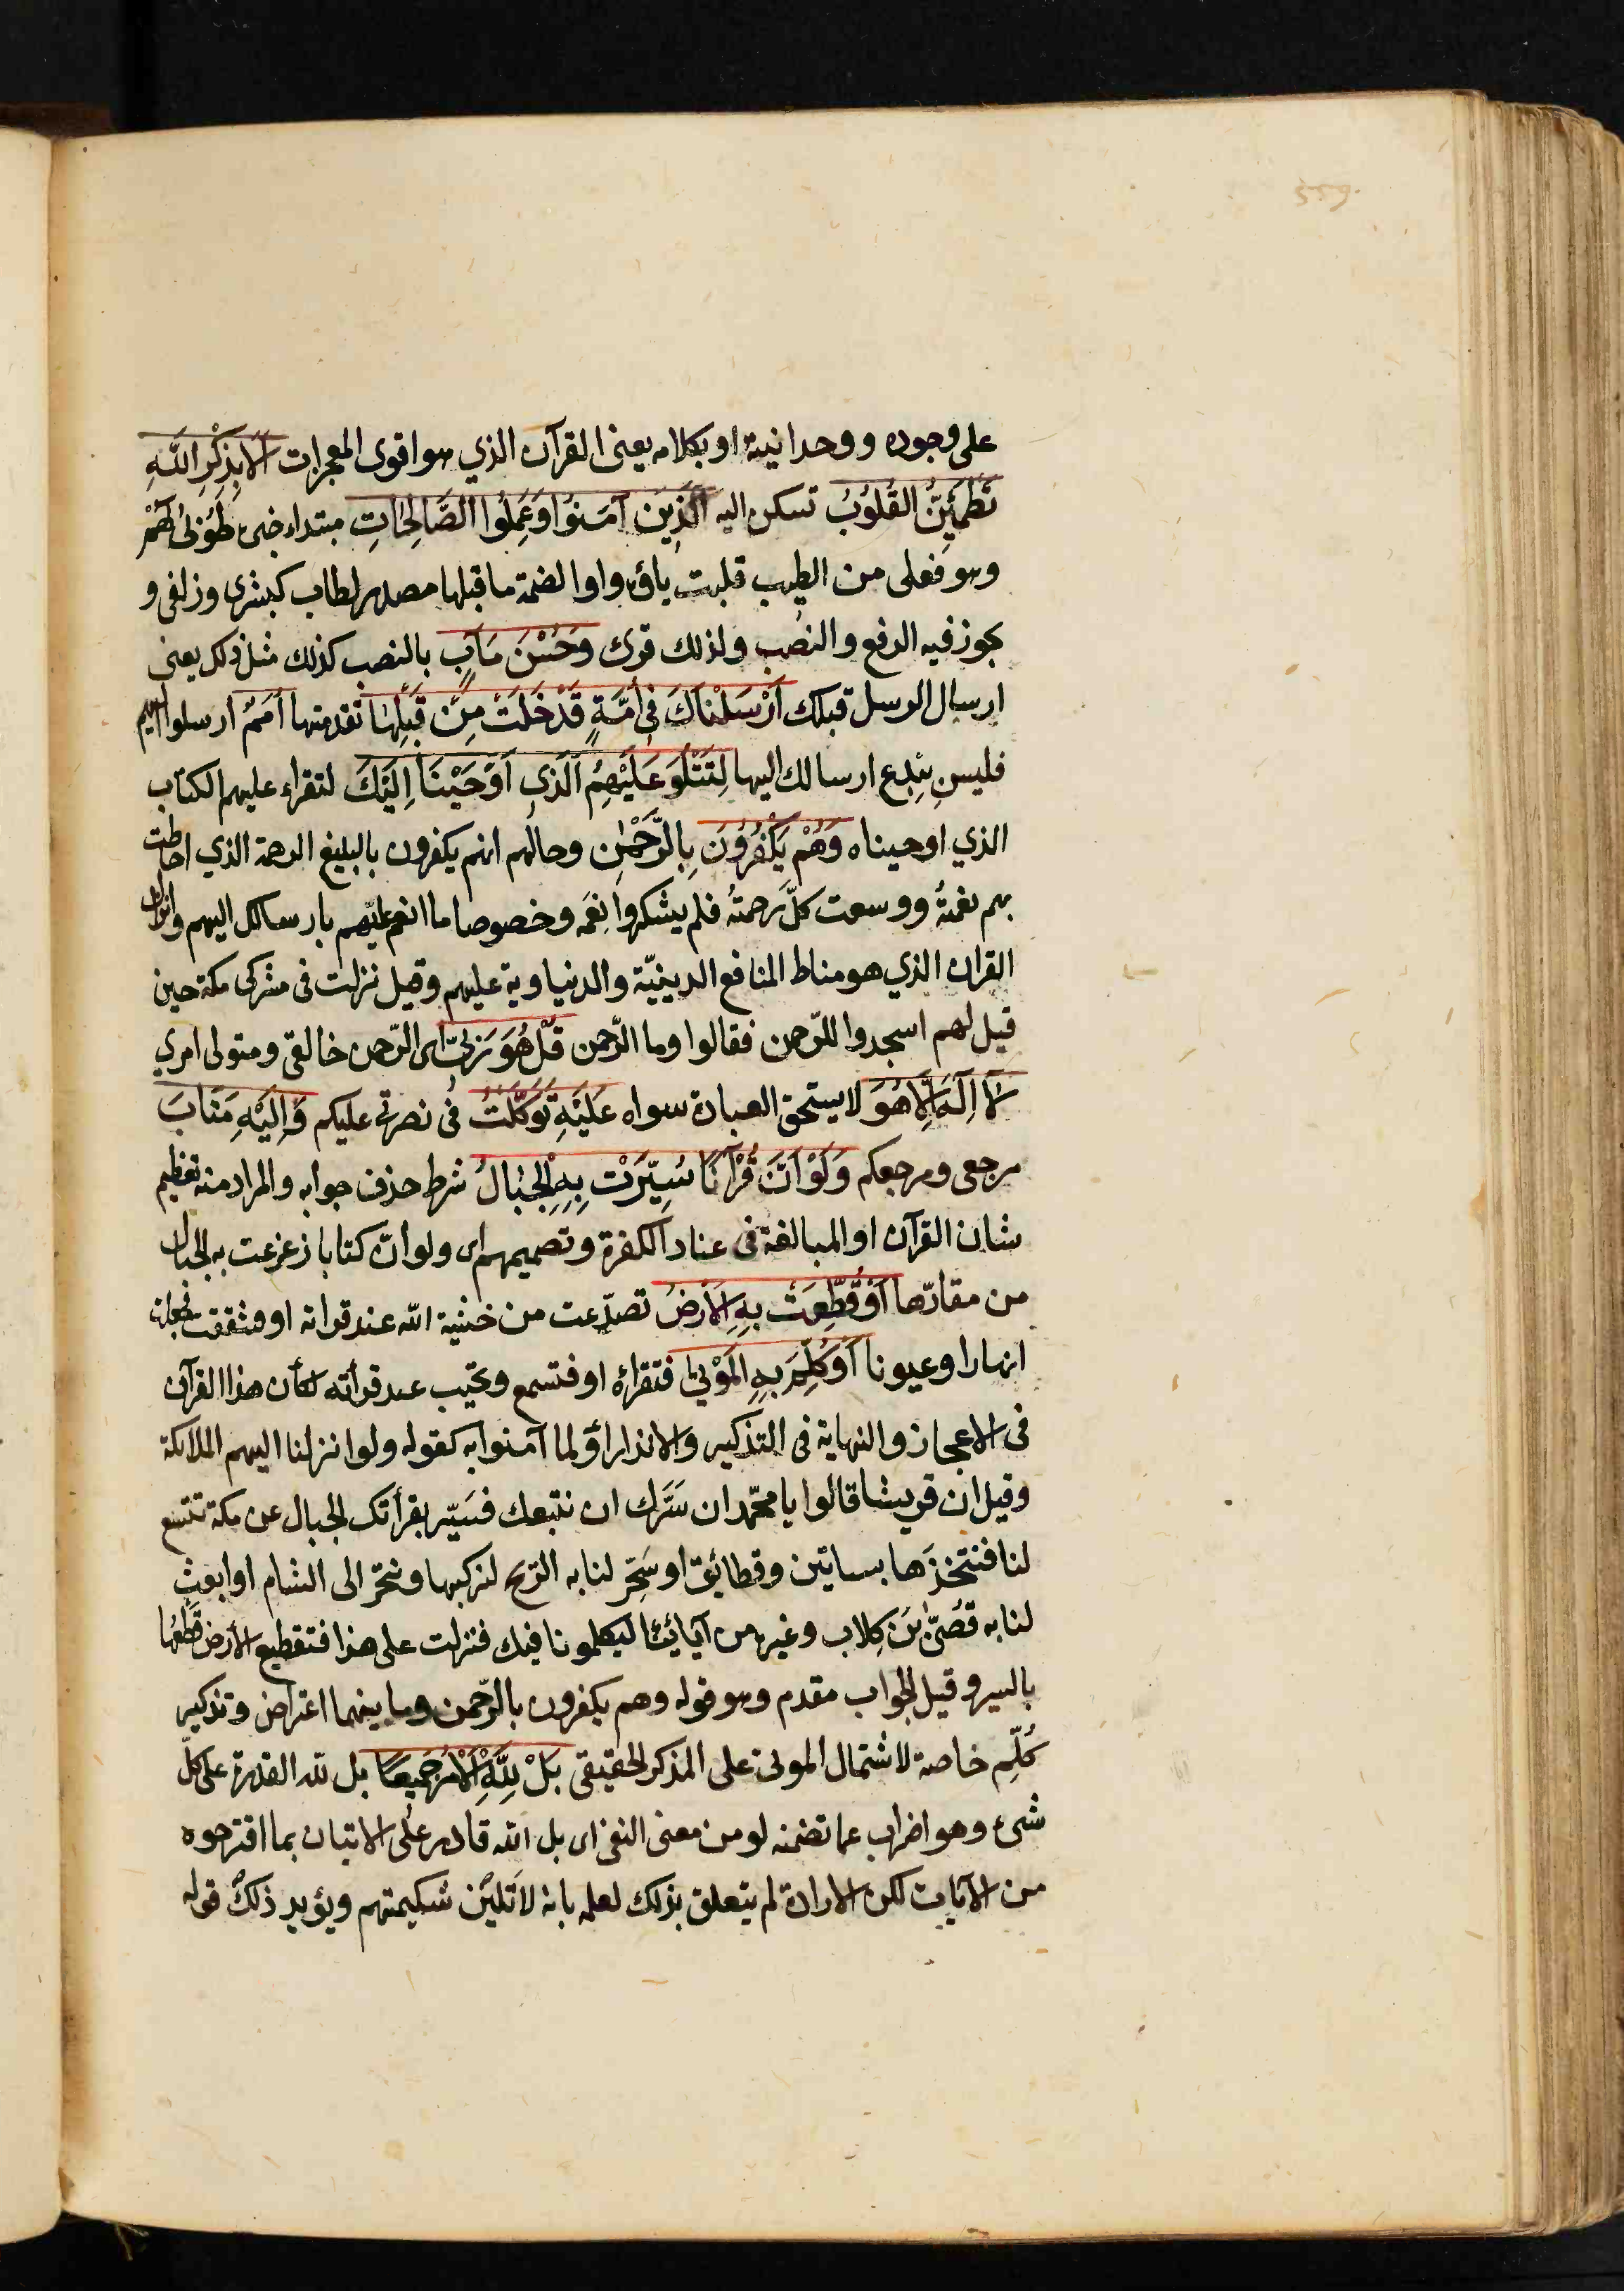 559
على وجوده ووحدانيته او بكلامه يعنى القرآن الذي هو اقوى المعجزات اَلَا بِذِكْرِ اللَّهِ
تَطْمَئِنُّ الْقُلُوبُ تسكن اليه اَلَّذِينَ آمَنُوا وَعَمِلُوا الصَّالِحَاتِ مبتداء خبره طُوبىٰ لَهُمْ
وهو فعلى من الطيب قلبت ياؤه واوا لضمة ما قبلها مصدر لطاب كبشرى وزلفى و
يجوز فيه الرفع والنصب ولذلك قرئ وَحُسْنَ مَآبٍ بالنصب كذلك مثل ذلك يعنى
ارسال الرسل قبلك اَرْسَلْنَاكَ فِى اُمَّةٍ قَدْ خَلَتْ مِنْ قَبْلِهَا تقدمتها اُمَمٌ ارسلوا اليهم
فليس بِبدع ارسالك اليها لِتَتْلُوَ عَلَيْهِمُ الَّذِى اَوْحَيْنَا اِلَيْكَ لتقراء عليهم الكتاب
الذي اوحيناه وَهُمْ يَكْفُرُونَ بِالرَّحْمٰنِ وحالهم انهم يكفرون بالبليغ الرحمة الذي احاطت
بهم نعمتُهُ ووسعت كلَّ رحمتُهُ فلم يشكروا نِعَمه وخصوصا ما انعم عليهم بارسالك اليهم وانزال
القران الذي هو مناط المنافع الدينيّة والدنياوية عليهم وقيل نزلت فى مشركى مكة حين
قيل لهم اسجدوا للرّحمن فقالوا وما الرّحمن قُلْ هُوَ رَبِّى اى الرّحمن خالقى ومتولى امري
لَا اِلٰهَ اِلَّا هُوَ لا يستحق العبادة سواه عَلَيْهِ تَوَكَّلْتُ فى نصرتى عليكم وَاِلَيْهِ مَتَابِ
مرجعى ومرجعكم وَلَوْ اَنَّ قُرْآنًا سُيِّرَتْ بِهِ الْجِبَالُ شرط حذف جوابه والمراد منه تعظيم
شان القرآن او المبالغة فى عناد الكفرة وتصميمهم اى ولو انّ كتابا زعزعت به الجبال
من مقارّها اَوْ قُطِّعَتْ بِهِ الْاَرْضُ تصدّعت من خشية الله عند قراته او فشققت فجعلت
انهارا وعيونا اَوْ كُلِّمَ بِهِ الْمَوْتىٰ فتقراؤه او فتسمع وتجيب عند قرأته لكأن هذا القرآن
فى الاعجاز والنهاية فى التذكير والانذار اوَ لما آمنوا به كقوله ولو انزلنا اليهم الملائكة
وقيل ان قريشا قالوا يا محمّد ان سَرَّك ان نتبعك فسَيّر بقرأتك الجبال عن مكة تتسع
لنا فنتخذَها بساتين وقطائع او سَخِّر لنا به الرّيح لنركبها ونتجر الى الشام او ابعث
لنا به قُصَىّ بْنَ كِلاب وغيره من آبائنا ليكلمونا فيك فنزلت على هذا فتقطيع الارض قطعُها
بالسير وقيل الجواب مقدم وهو قوله وهم يكفرون بالرّحمن وما بينهما اعتراض وتذكير
كُلّم خاصة لاشتمال الموتى على المذكر الحقيقى بَلْ لِلَّهِ الْاَمْرُ جَمِيعًا بل لله القدرة على كلّ
شئ وهو اضراب عما تضمنه لو من معنى النفى اى بل الله قادر على الاتيان بما اقترحوه
من الآيات لكن الارادة لم يتعلق بذلك لعلمه بانه لا تلين شكيمتهم ويؤيد ذلك قوله